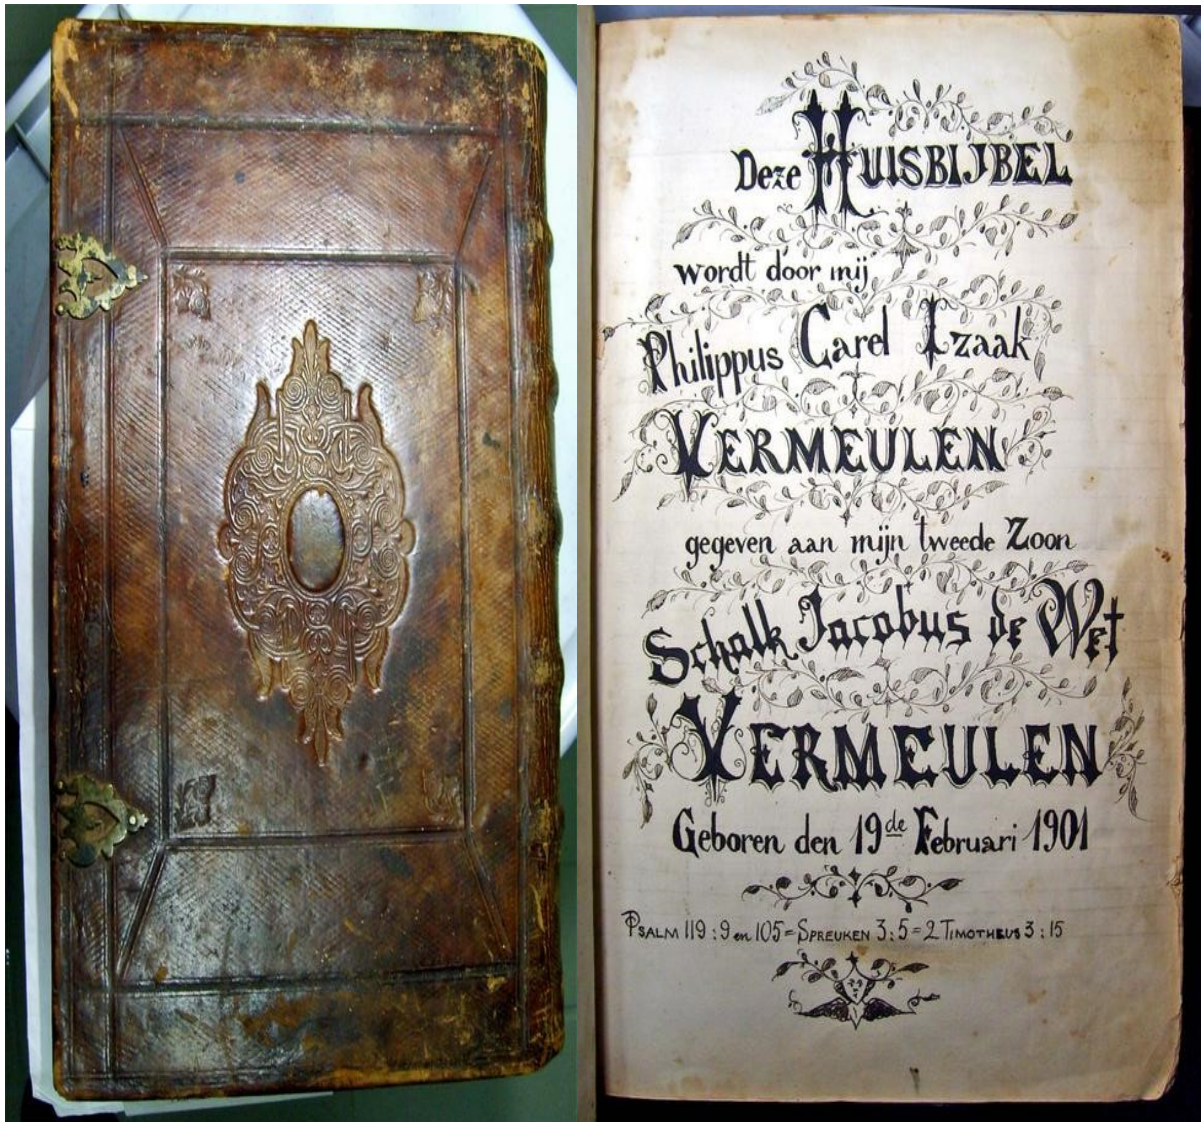 Deze HUISBIJBEL
wordt door mij
Philippus Carel Izaak
VERMEULEN
gegeven aan mijn tweede Zoon
Schalk Jacobus de Wet
VERMEULEN
Geboren den 19de Februari 1901
PSALM 119 : 9 en 105 = SPREUKEN 3 : 5 = 2 TIMOTHEUS 3 : 15